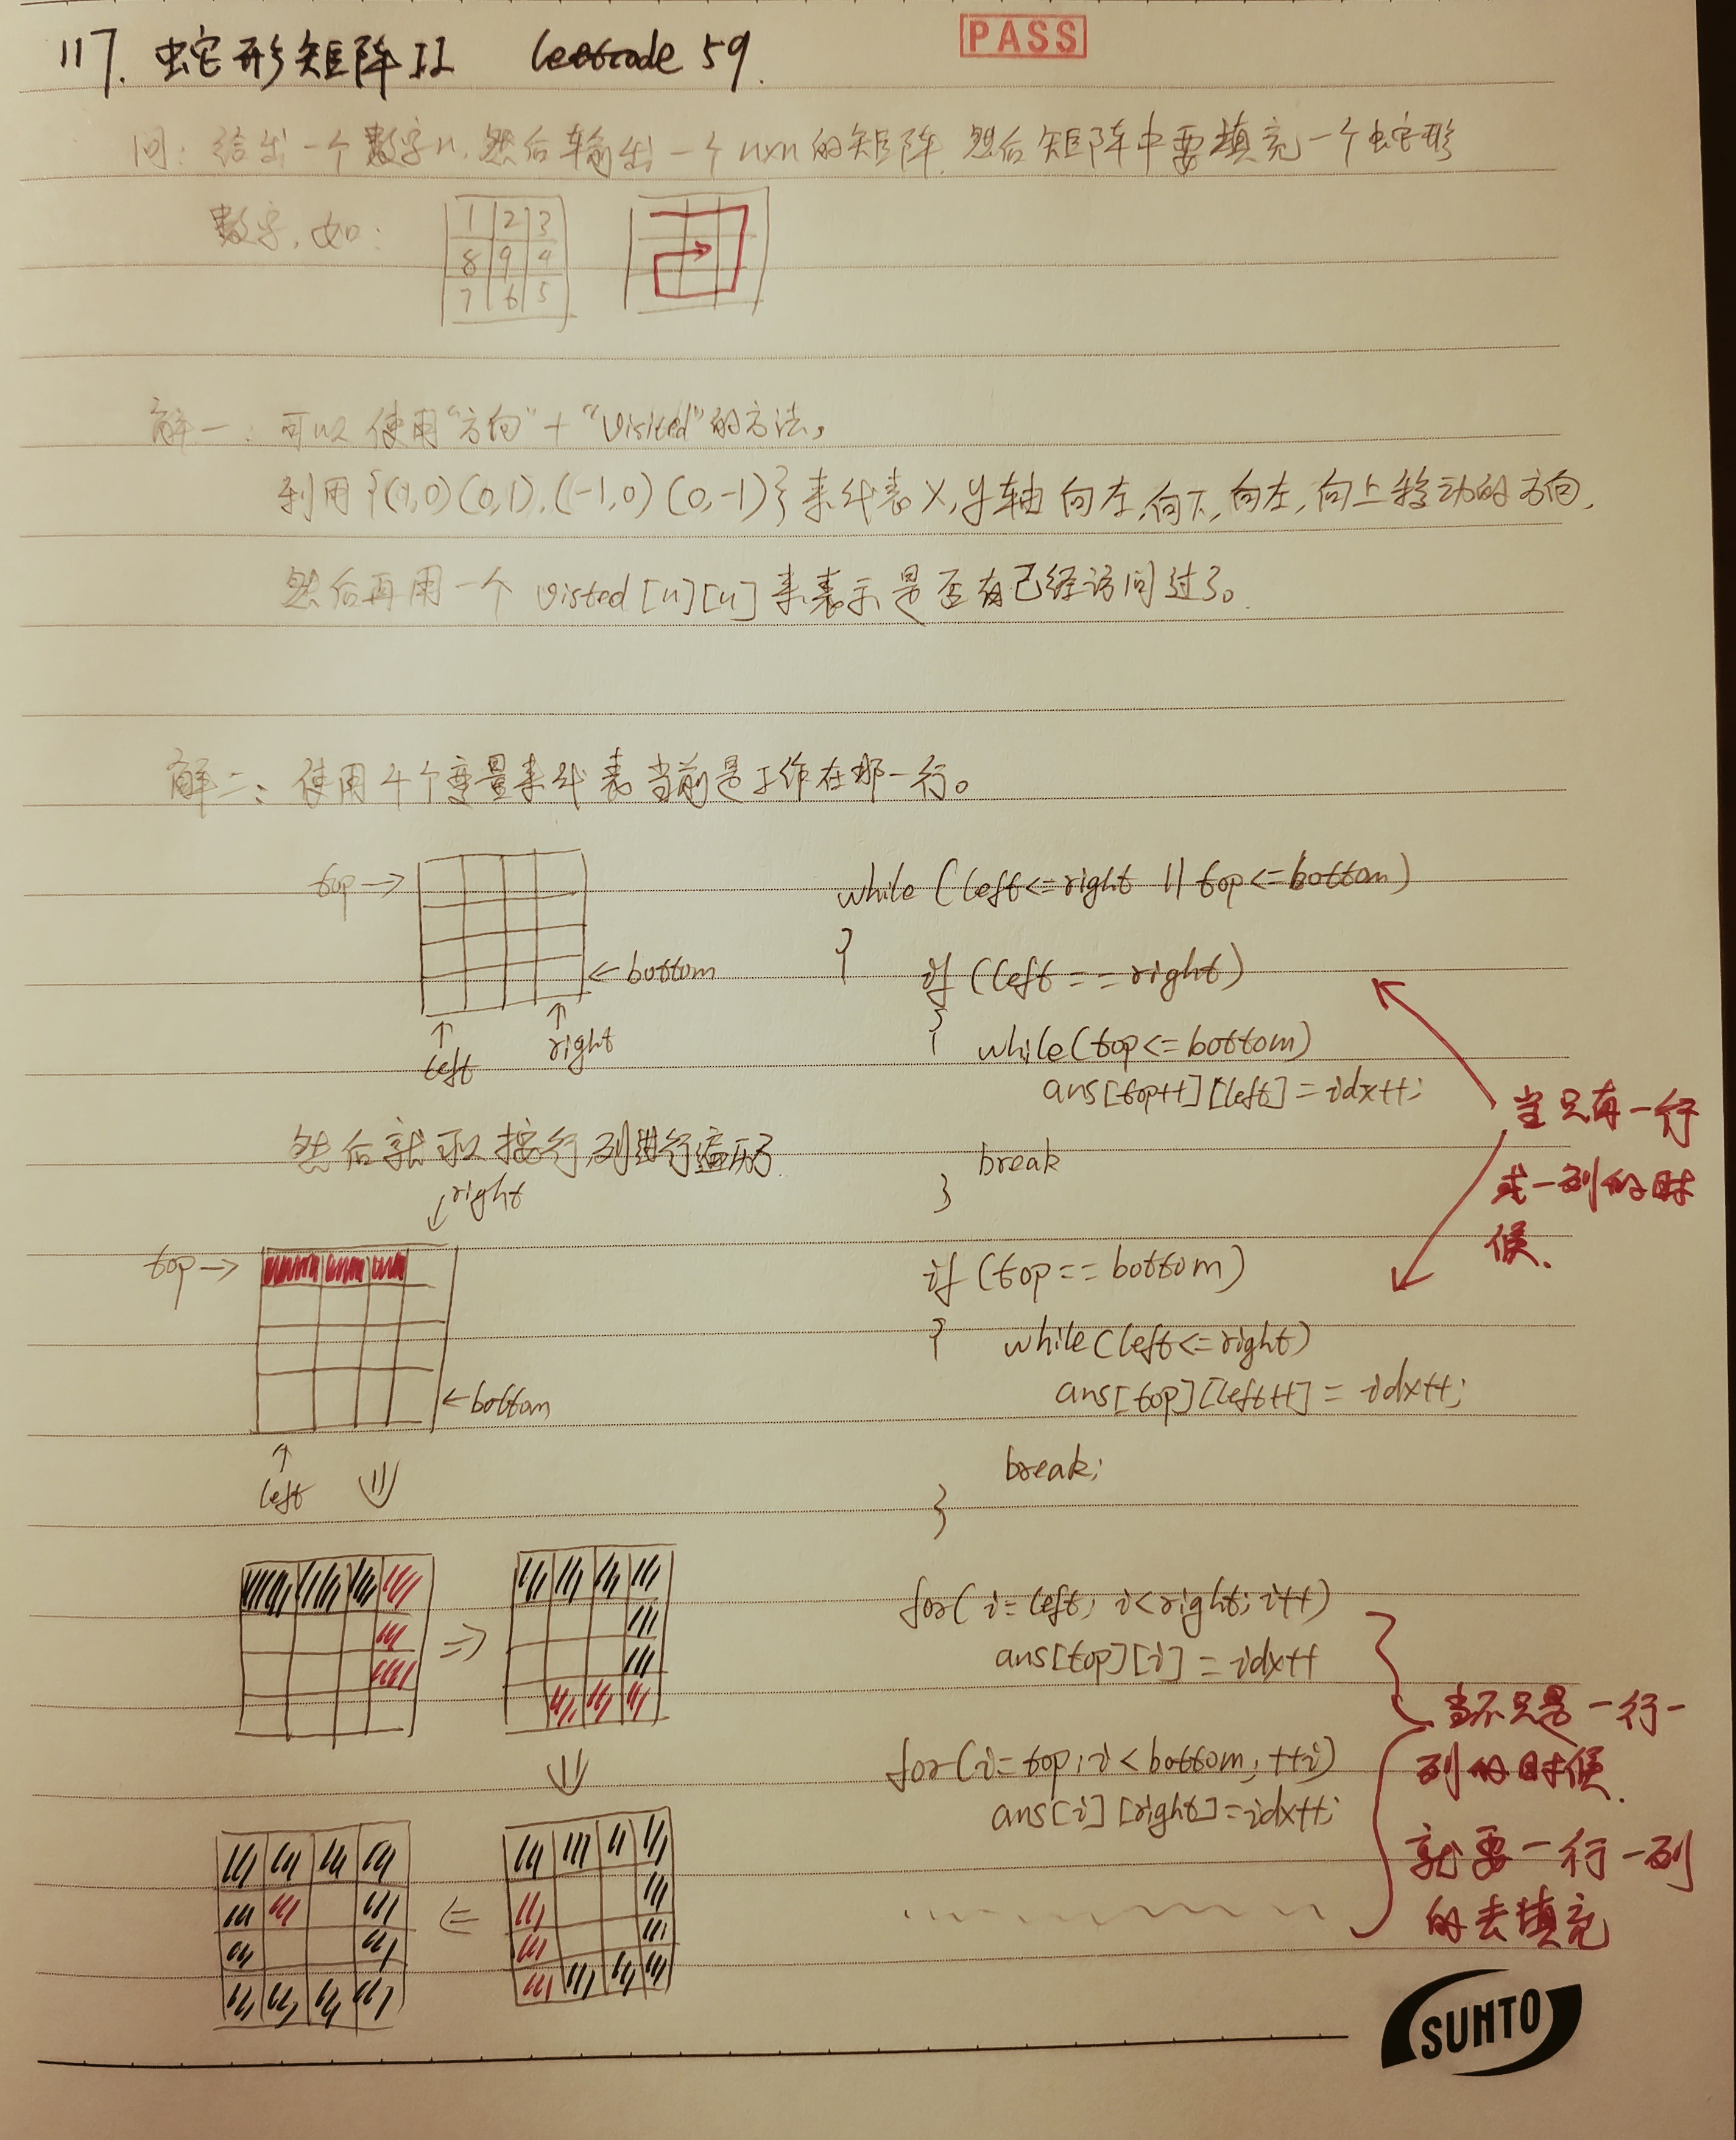 117. 蛇形矩阵II leetcode 59.
PASS
问: 给出一个数字n, 然后输出一个nxn的矩阵. 然后矩阵中要填充一个蛇形
数字, 如:
1 2 3
8 9 4
7 6 5
解一: 可以使用"方向"+"visited"的方法,
利用{(1,0)(0,1),(-1,0)(0,-1)}来代表X,y轴向左,向下,向左,向上移动的方向.
然后再用一个visted[n][n]来表示是否有已经访问过了。
解二: 使用4个变量来代表当前是工作在那一行。
top→
←bottom
↑
left
↑
right
然后就可以按行,列进行遍历
right
top→
←bottom
↑
left
while (left<=right || top<=bottom)
{
if (left==right)
{
while(top<=bottom)
ans[top++][left]=idx++;
break
}
if (top==bottom)
{
while(left<=right)
ans[top][left++]=idx++;
break;
}
for(i=left; i<right; i++)
ans[top][i]=idx++
for(i=top; i<bottom; ++i)
ans[i][right]=idx++;
当只有一行
或一列的时
候.
当不只是一行一
列的时候.
就要一行一列
的去填充
SUNTO